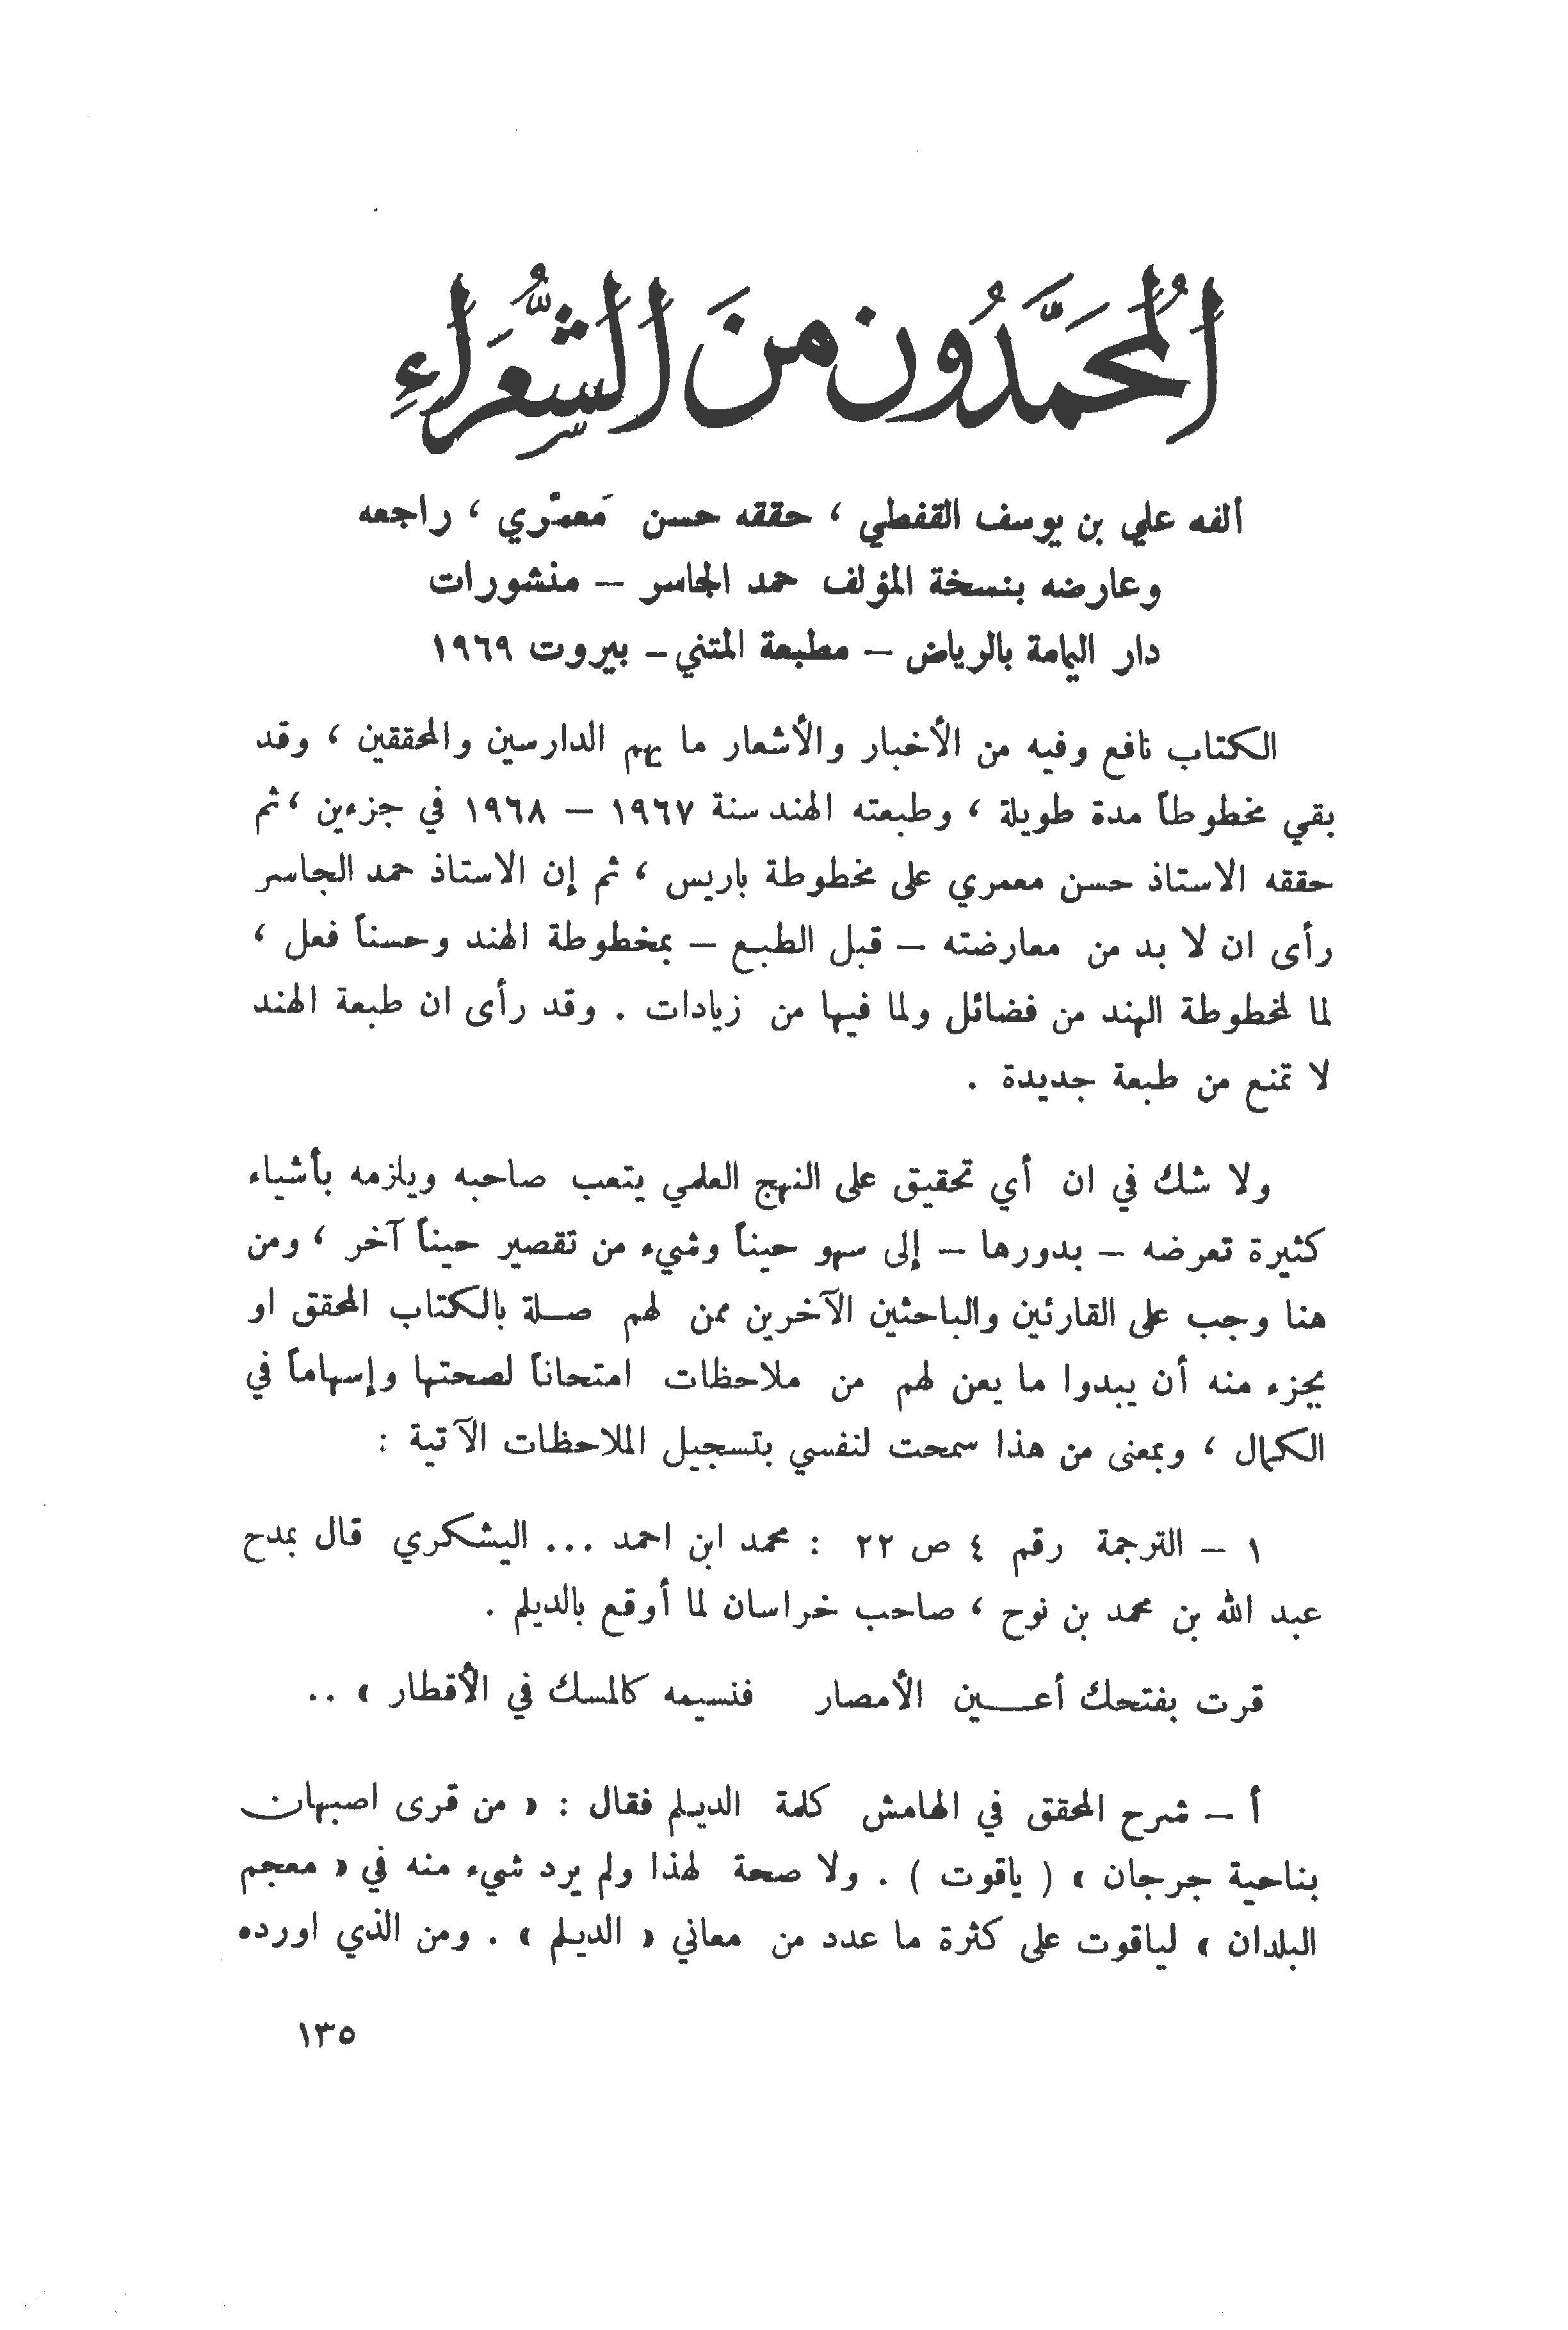 المُحَمَّدُون مِنَ الشُّعَرَاءِ
ألفه علي بن يوسف القفطي ، حققه حسن مَعمّري ، راجعه
وعارضه بنسخة المؤلف حمد الجاسر – منشورات
دار اليمامة بالرياض – مطبعة المتني – بيروت ١٩٦٩
الكتاب نافع وفيه من الأخبار والأشعار ما يهم الدارسين والمحققين ، وقد
بقي مخطوطاً مدة طويلة ، وطبعته الهند سنة ١٩٦٧ – ١٩٦٨ في جزءين ، ثم
حققه الاستاذ حسن معمري على مخطوطة باريس ، ثم إن الاستاذ حمد الجاسر
رأى ان لا بد من معارضته – قبل الطبع – بمخطوطة الهند وحسناً فعل ،
لما لمخطوطة الهند من فضائل ولما فيها من زيادات . وقد رأى ان طبعة الهند
لا تمنع من طبعة جديدة .
ولا شك في ان أي تحقيق على النهج العلمي يتعب صاحبه ويلزمه بأشياء
كثيرة تعرضه – بدورها – إلى سهو حيناً وشيء من تقصير حيناً آخر ، ومن
هنا وجب على القارئين والباحثين الآخرين ممن لهم صلة بالكتاب المحقق او
بجزء منه أن يبدوا ما يعن لهم من ملاحظات امتحاناً لصحتها وإسهاماً في
الكمال ، وبمعنى من هذا سمحت لنفسي بتسجيل الملاحظات الآتية :
١ – الترجمة رقم ٤ ص ٢٢ : محمد ابن احمد ... اليشكري قال بمدح
عبد الله بن محمد بن نوح ، صاحب خراسان لما أوقع بالديلم .
قرت بفتحك أعين الأمصار فنسيمه كالمسك في الأقطار » ..
أ – شرح المحقق في الهامش كلمة الديلم فقال : « من قرى اصبهان
بناحية جرجان » ( ياقوت ) . ولا صحة لهذا ولم يرد شيء منه في « معجم
البلدان » لياقوت على كثرة ما عدد من معاني « الديلم » . ومن الذي اورده
١٣٥